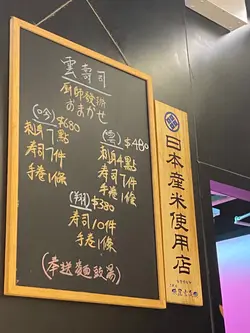 雲壽司
廚師發辦
おまかせ
(吟) $680
刺身7點
壽司7件
手卷1條
(雲) $480
刺身4點
壽司7件
手卷1條
(翔) $380
壽司10件
手卷1條
(奉送麵豉湯)
日本産米使用店